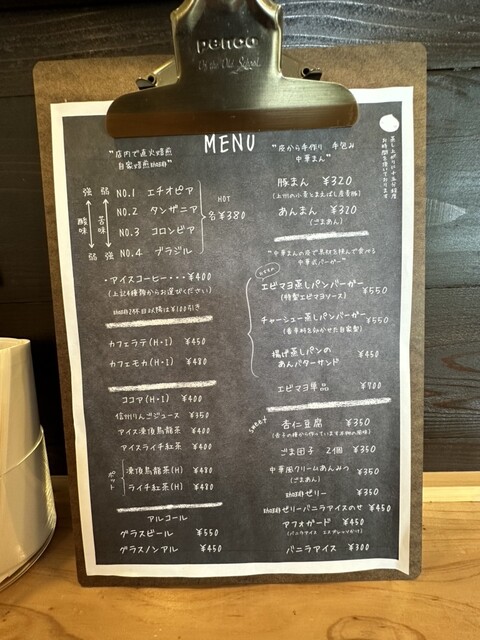 penco
Of the Old School
MENU
"店内で直火焙煎
自家焙煎珈琲"
強 弱
酸味 苦味
弱 強
NO.1 エチオピア
NO.2 タンザニア
NO.3 コロンビア
NO.4 ブラジル
HOT
各¥380
・アイスコーヒー・・・¥400
(上記4種類からお選びください)
珈琲2杯目以降は¥100引き
カフェラテ(H・I) ¥450
カフェモカ(H・I) ¥480
ココア(H・I) ¥400
信州りんごジュース ¥350
アイス凍頂烏龍茶 ¥400
アイスライチ紅茶 ¥400
ポット
凍頂烏龍茶(H) ¥480
ライチ紅茶(H) ¥480
アルコール
グラスビール ¥550
グラスノンアル ¥450
"皮から手作り 手包み
中華まん"
蒸し上がりに十五分程度
お時間を頂いております
豚まん ¥320
(上州の小麦とまえばし産麦豚)
あんまん ¥320
(ごまあん)
"中華まんの皮で具材を挟んで食べる
中華式バーガー"
エビマヨ蒸しパンバーガー ¥550
(特製エビマヨソース)
チャーシュー蒸しパンバーガー ¥550
(香辛料を効かせた自家製)
揚げ蒸しパンの
あんバターサンド ¥450
エビマヨ単品 ¥700
sweets
杏仁豆腐 ¥350
(杏子の種から作っています本物の風味)
ごま団子 2個 ¥350
中華風クリームあんみつ ¥350
(ごまあん)
珈琲ゼリー ¥350
珈琲ゼリーバニラアイスのせ ¥450
アフォガード ¥450
(バニラアイス エスプレッソがけ)
バニラアイス ¥300